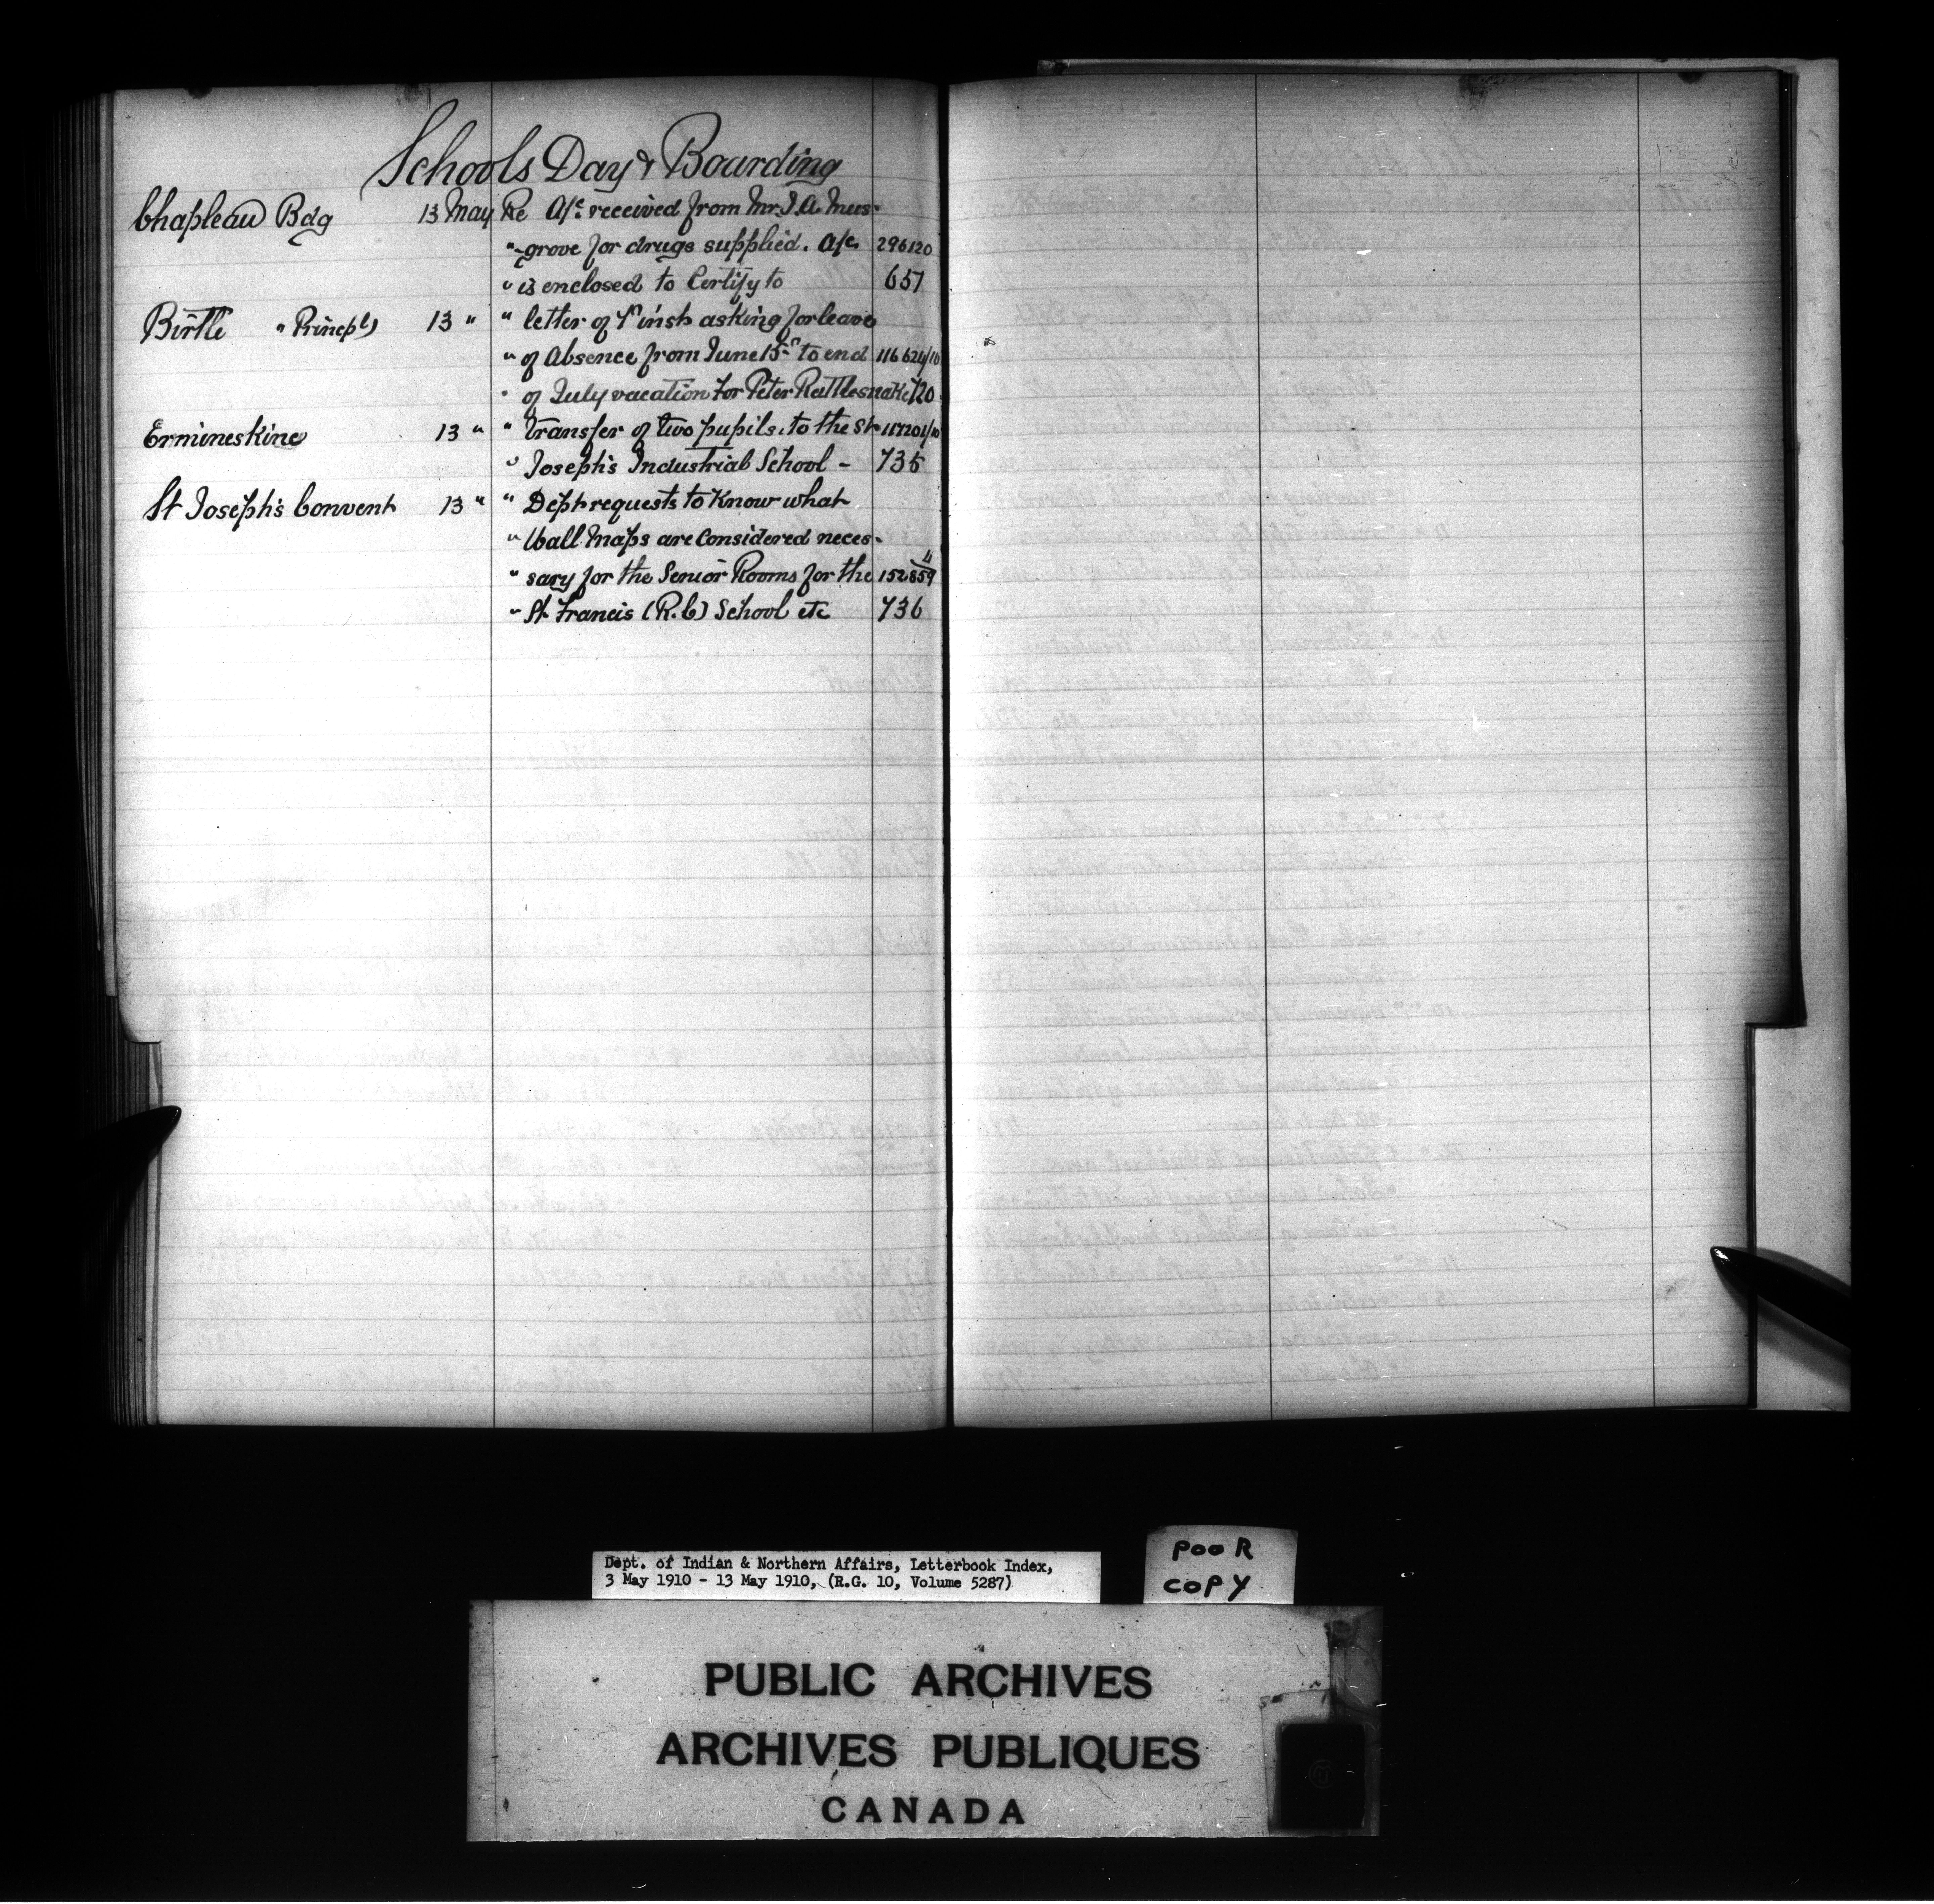 Schools Day & Boarding
Chapleau Bdg 13 May Re A/c received from Mr. J. A. Mus-
" -grove for drugs supplied. A/c 296120
" is enclosed to Certify to 657
Birtle " Princpl) 13 " " letter of 7th inst asking for leave
" of Absence from June 15th to end 116624/10
" of July vacation for Peter Rattlesnake 720
Ermineskine 13 " " Transfer of two pupils, to the St 117201/10
" Joseph's Industrial School - 735
St Joseph's Convent 13 " " Dept requests to Know what
" Wall Maps are Considered neces-
" sary for the Senior Rooms for the 152859
" St Francis (R.C) School etc 736
Dept. of Indian & Northern Affairs, Letterbook Index,
3 May 1910 - 13 May 1910, (R.G. 10, Volume 5287)
POOR
COPY
PUBLIC ARCHIVES
ARCHIVES PUBLIQUES
CANADA